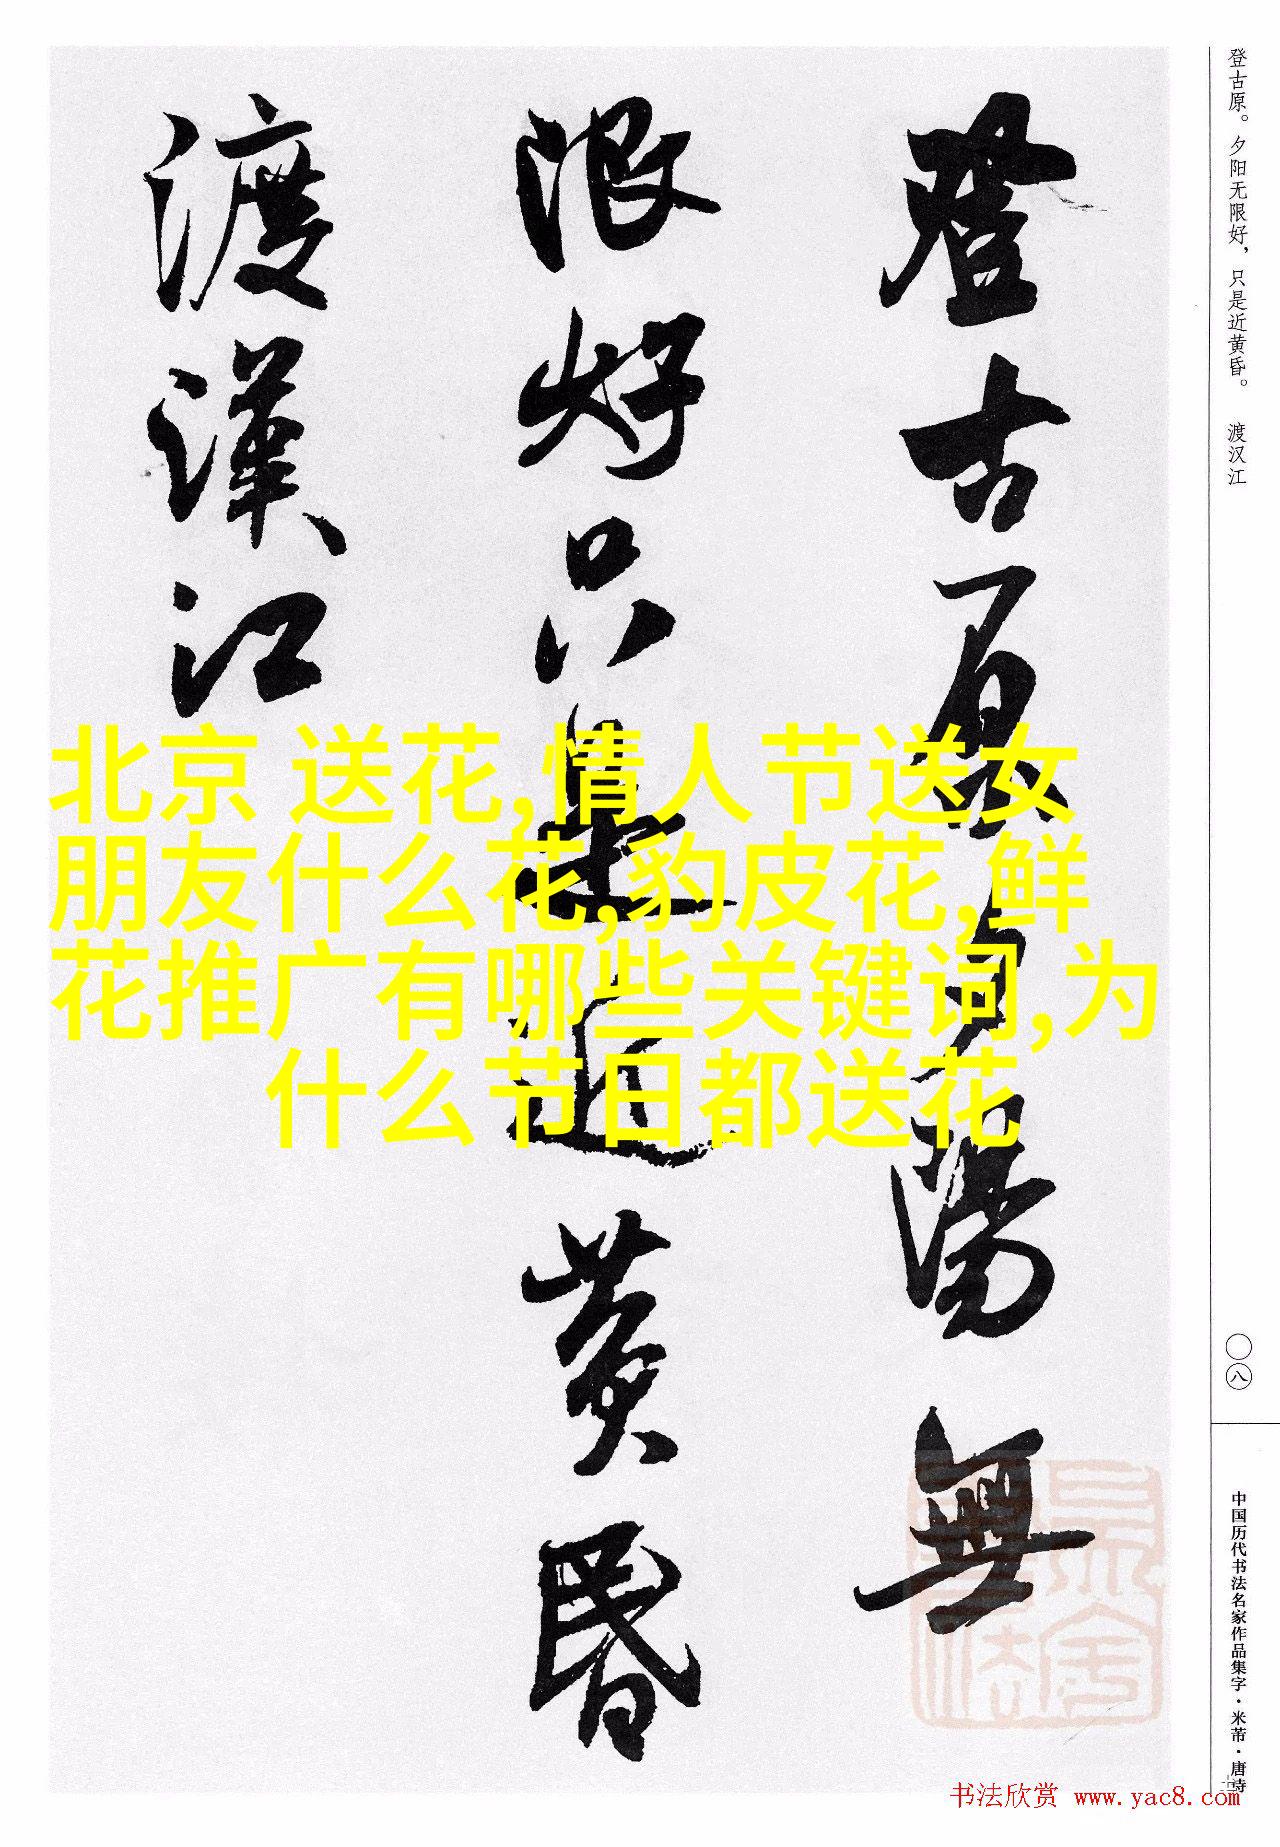 登古原夕陽無
限好只是近黄昏
渡漢江
登古原。夕阳无限好，只是近黄昏。 渡汉江
〇八
中国历代书法名家作品集字·米芾·唐诗
北京 送花,情人节送女
朋友什么花,豹皮花,鲜
花推广有哪些关键词,为
什么节日都送花
书法欣赏 www.yac8.com